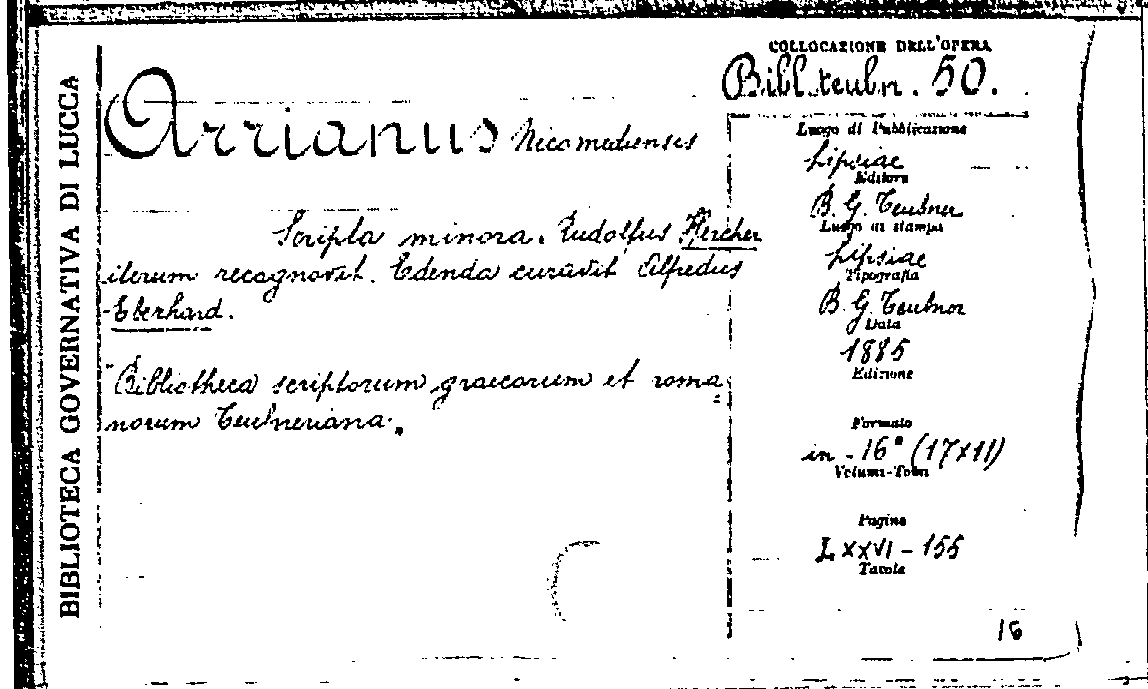 BIBLIOTECA GOVERNATIVA DI LUCCA
COLLOCAZIONE DELL'OPERA
Bibl. teubn. 50.
Arrianus Nicomediensis
Scripta minora. Rudolfus Hercher
iterum recagnovit. Edenda curavit Alfredus
Eberhard.
Bibliotheca scriptorum graecorum et roma=
norum Teubneriana.
Luogo di Pubblicazione
Lipsiae
Editore
B. G. Teubner
Luogo di stampa
Lipsiae
Tipografia
B. G. Teubner
Data
1885
Edizione
Formato
in - 16° (17x11)
Volumi-Tomi
Pagine
LXXVI - 155
Tavole
16